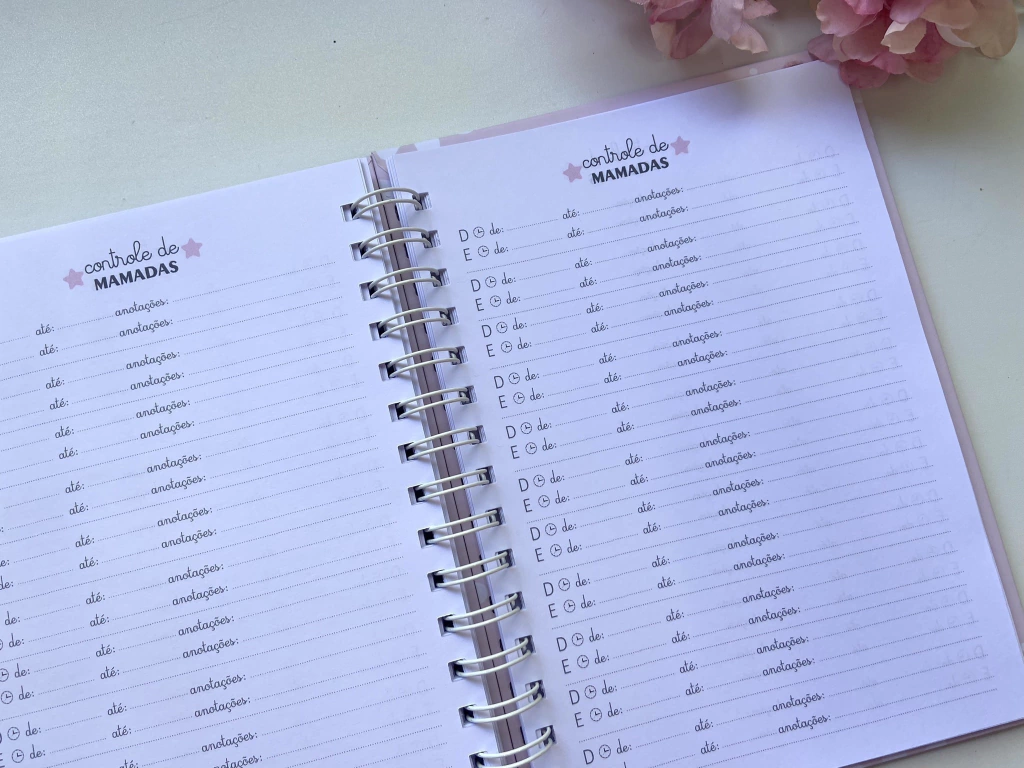 controle de
MAMADAS
até: anotações:
até: anotações:
até: anotações:
até: anotações:
até: anotações:
até: anotações:
até: anotações:
até: anotações:
de: até: anotações:
de: até: anotações:
de: até: anotações:
de: até: anotações:
de: até: anotações:
de: até: anotações:
D de: até: anotações:
E de: até: anotações:
até: anotações:
anotações:
controle de
MAMADAS
D de: até: anotações:
E de: até: anotações:
D de: até: anotações:
E de: até: anotações:
D de: até: anotações:
E de: até: anotações:
D de: até: anotações:
E de: até: anotações:
D de: até: anotações:
E de: até: anotações:
D de: até: anotações:
E de: até: anotações:
D de: até: anotações:
E de: até: anotações:
D de: até: anotações:
E de: até: anotações:
D de: até: anotações:
E de: até: anotações:
D de: até: anotações:
E de: até: anotações:
D de: até: anotações:
até: anotações: